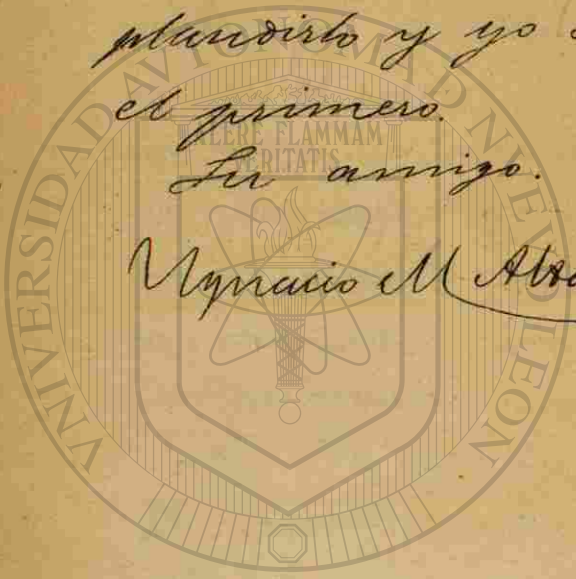 plaudirlo y yo
el primero.
Su amigo.
Ygnacio M Alta
UNIVERSIDAD AUTONOMA DE NUEVO LEON
ALERE FLAMMAM
VERITATIS